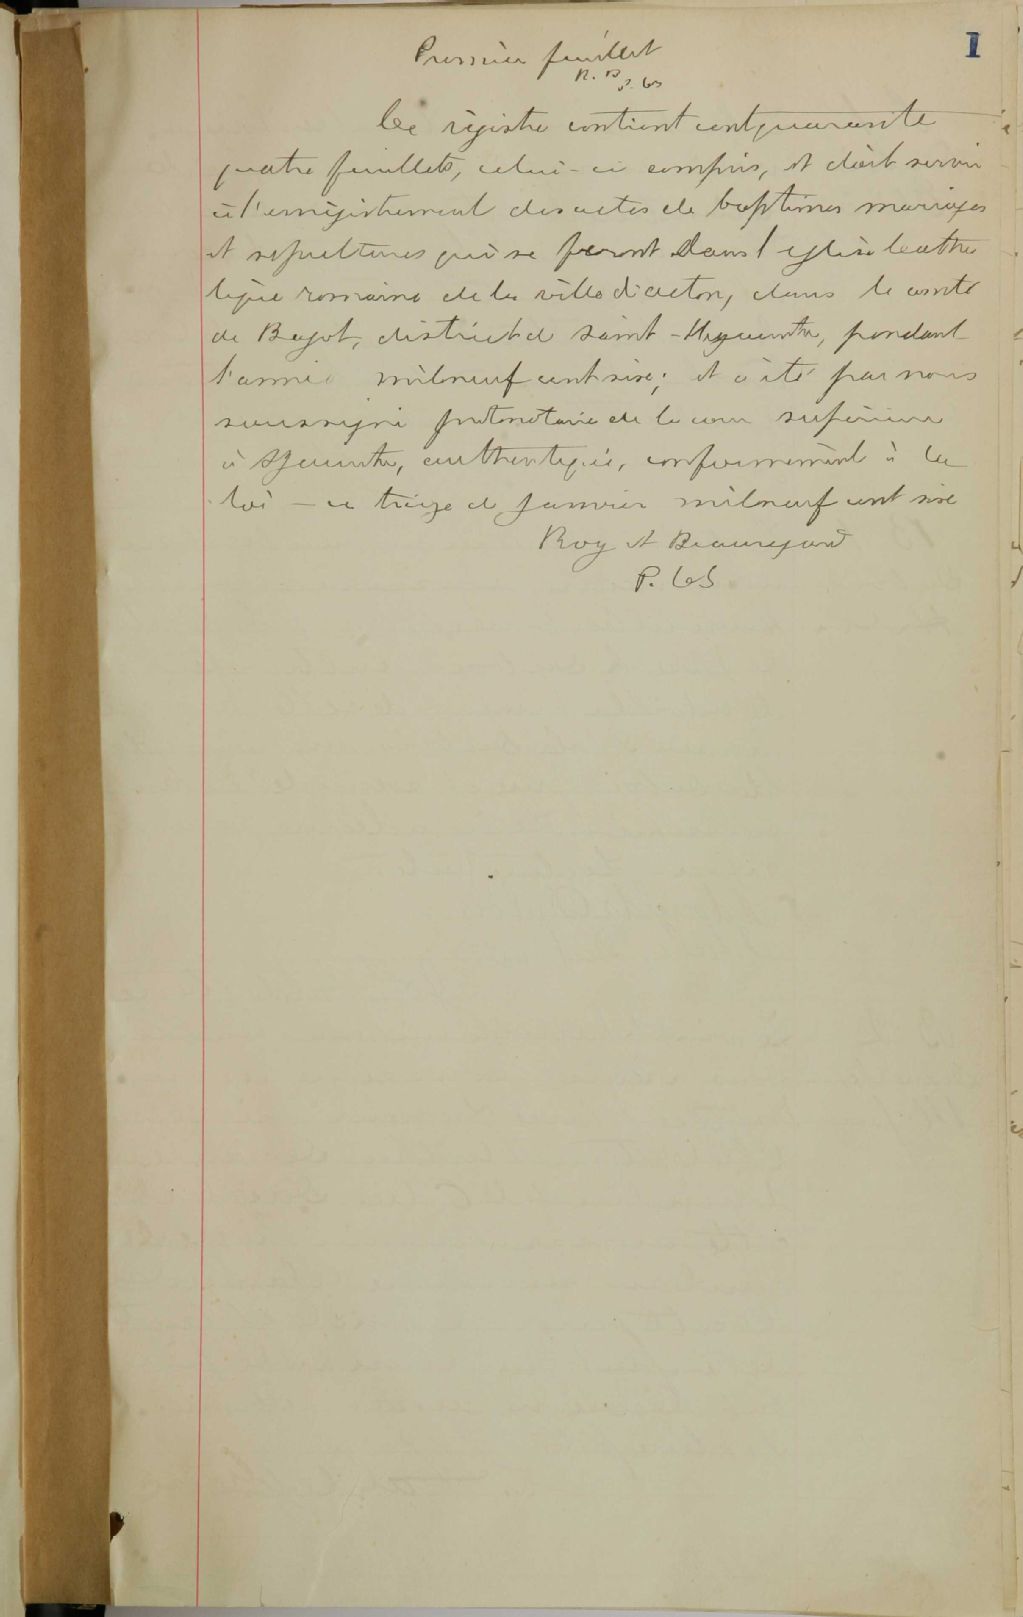 1
Premier feuillet
R. B
P. CS
Ce registre contient cent quarante
quatre feuillets, celui-ci compris, et doit servir
à l'enregistrement des actes de baptêmes mariages
et sepultures qui se feront dans l'eglise Catho
lique romaine de la ville d'acton, dans le comté
de Bagot, district de saint-Hyacinthe, pendant
l'année mil neuf cent six; et a été par nous
soussigné protonotaire de la cour supérieure
à St Hyacinthe, authentiqué, conformément à la
loi - ce treize de janvier mil neuf cent six
Roy et Beauregard
P. CS